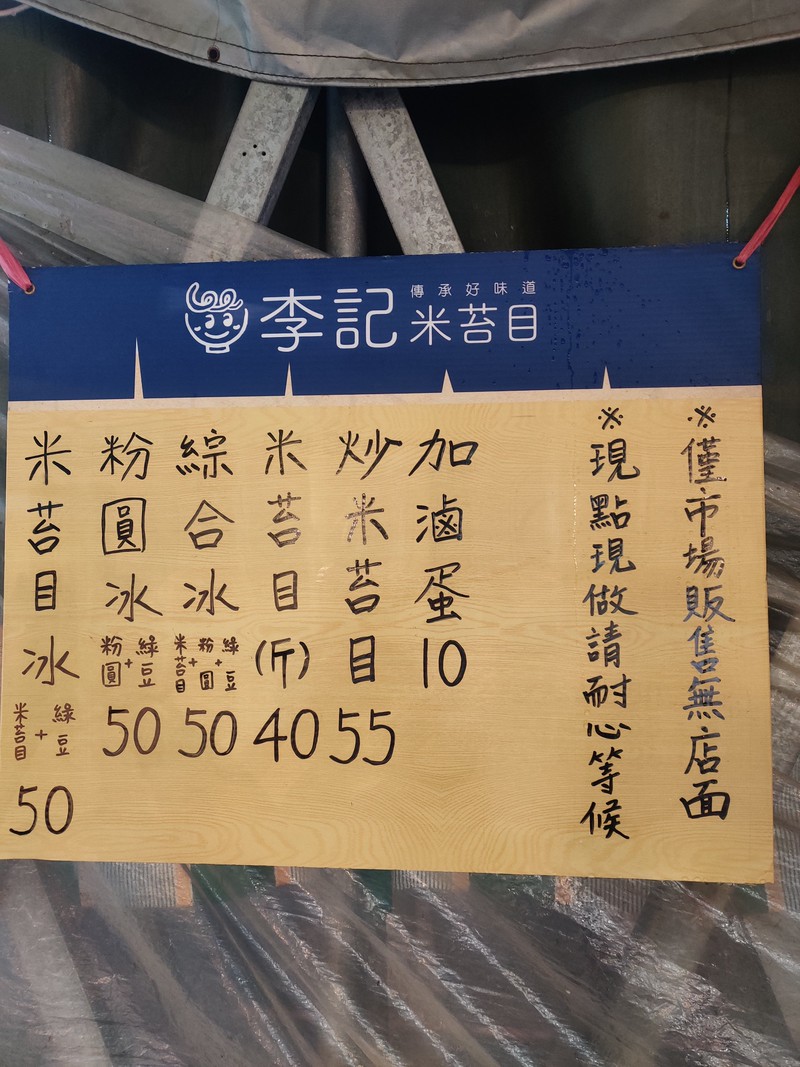 李記
傳承好味道
米苔目
※僅市場販售無店面
※現點現做請耐心等候
加滷蛋10
炒米苔目55
米苔目(斤)40
綜合冰
米苔目+粉圓+綠豆
50
粉圓冰
粉圓+綠豆
50
米苔目冰
米苔目+綠豆
50